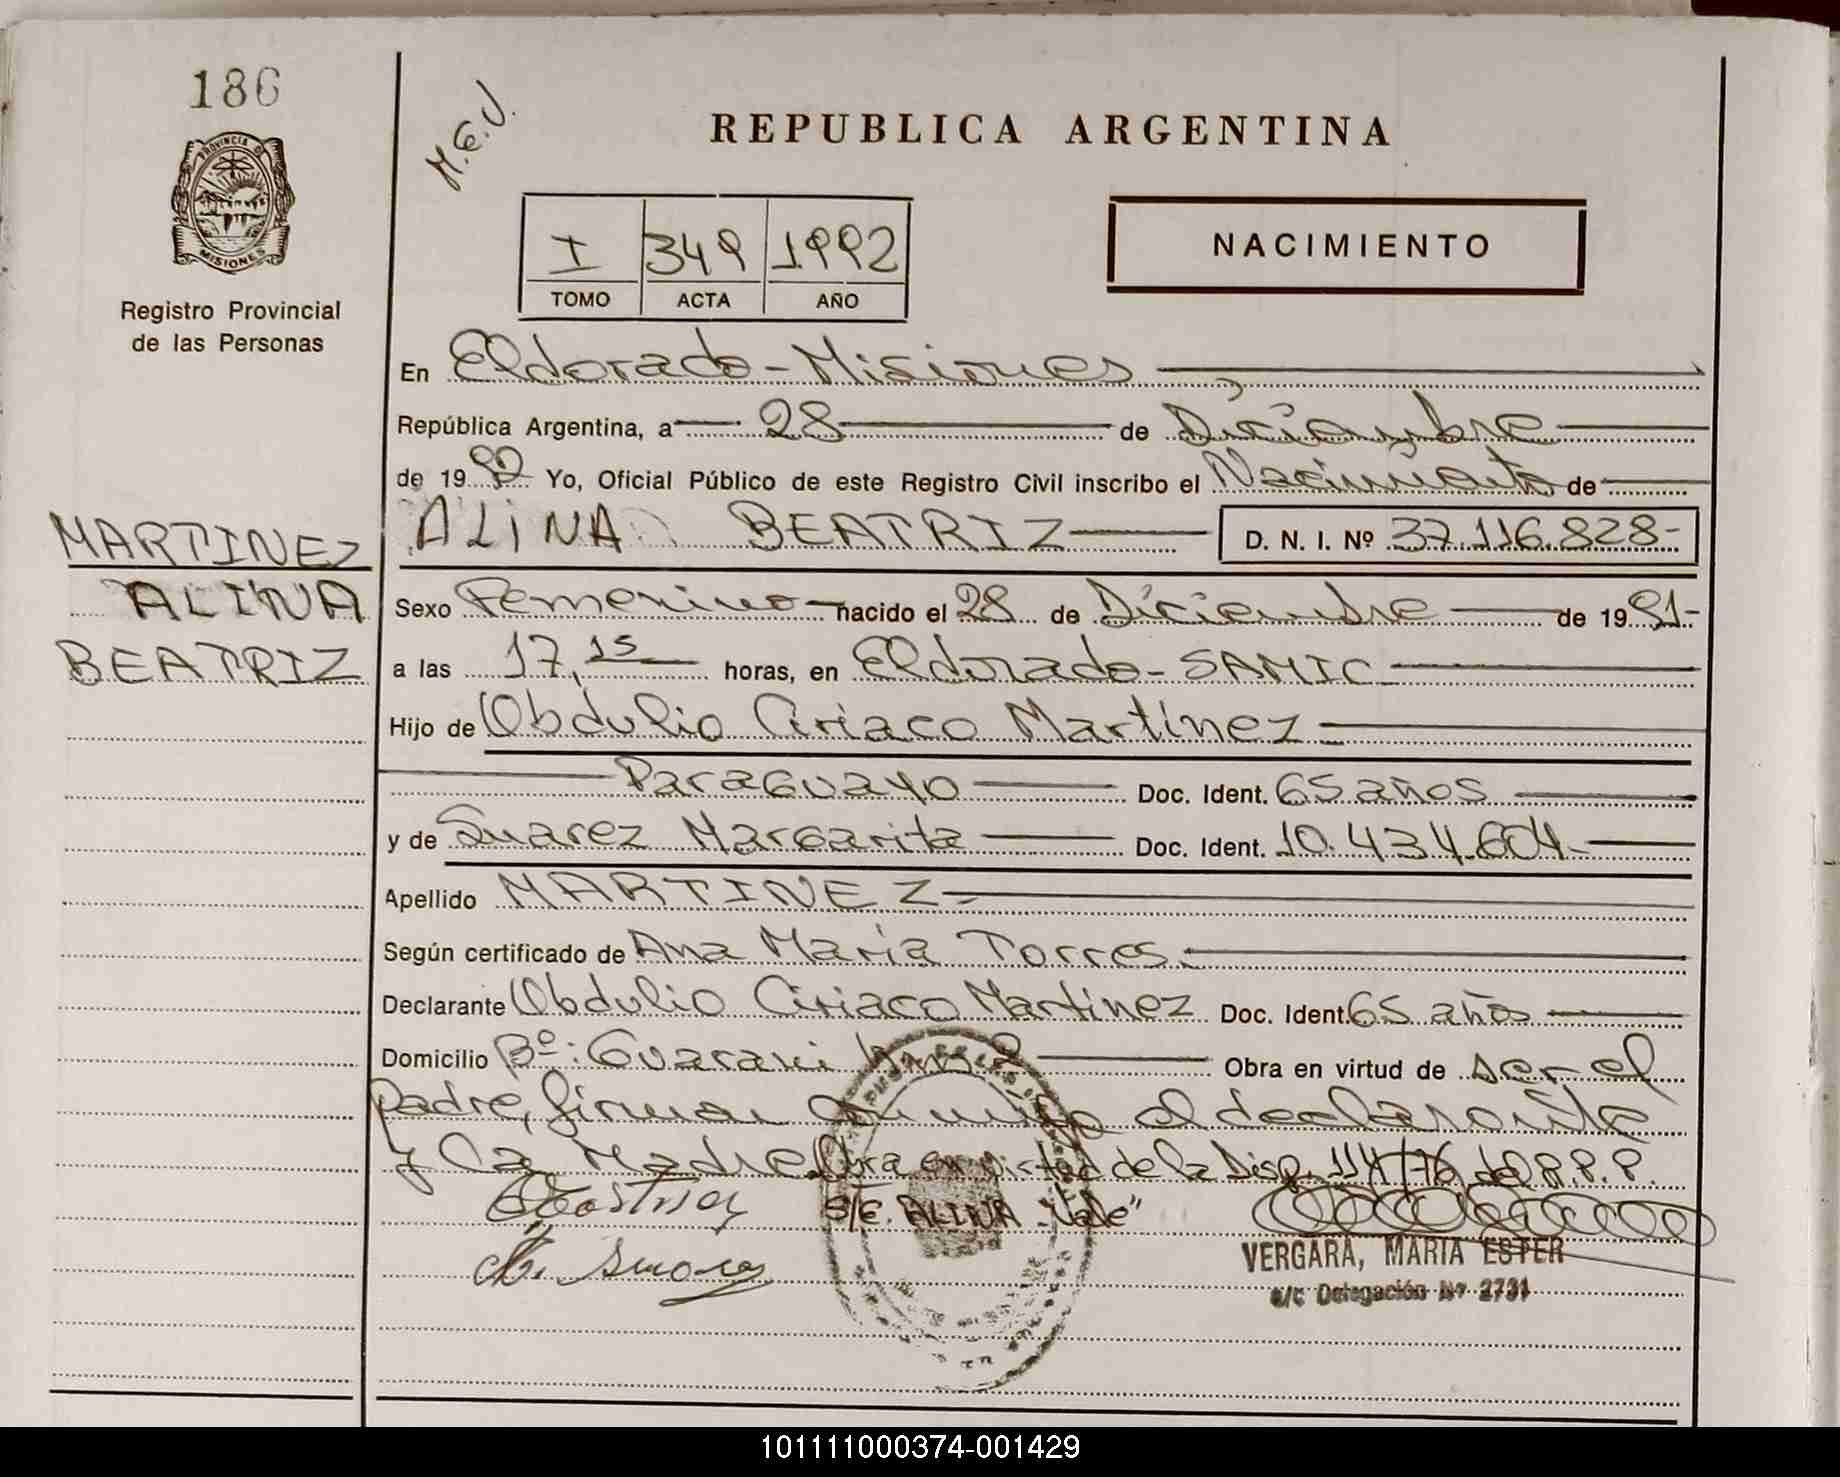 186
PROVINCIA D
MISIONES
Registro Provincial
de las Personas
MARTINEZ
ALINA
BEATRIZ
M.E.V.
REPUBLICA ARGENTINA
I 349 1992
TOMO ACTA AÑO
NACIMIENTO
En Eldorado - Misiones,
República Argentina, a 28 de Diciembre
de 1992 Yo, Oficial Público de este Registro Civil inscribo el Nacimiento de
ALINA BEATRIZ D. N. I. Nº 37.116.828-
Sexo Femenino nacido el 28 de Diciembre de 1991-
a las 17,15 horas, en Eldorado - SAMIC
Hijo de Obdulio Ciriaco Martínez
Paraguayo Doc. Ident. 65 años
y de Suarez Margarita Doc. Ident. 10.434.604-
Apellido MARTINEZ
Según certificado de Ana María Torres.
Declarante Obdulio Ciriaco Martínez Doc. Ident. 65 años
Domicilio Bº: Guarani Km 2 Obra en virtud de ser el
padre, firman conmigo el declarante
y la Madre. Obra en virtud de la Disp. 114/76 del R.P.P.
S/E. ALINA "Vale"
VERGARA, MARIA ESTER
a/c Delegación Nº 2731
101111000374-001429